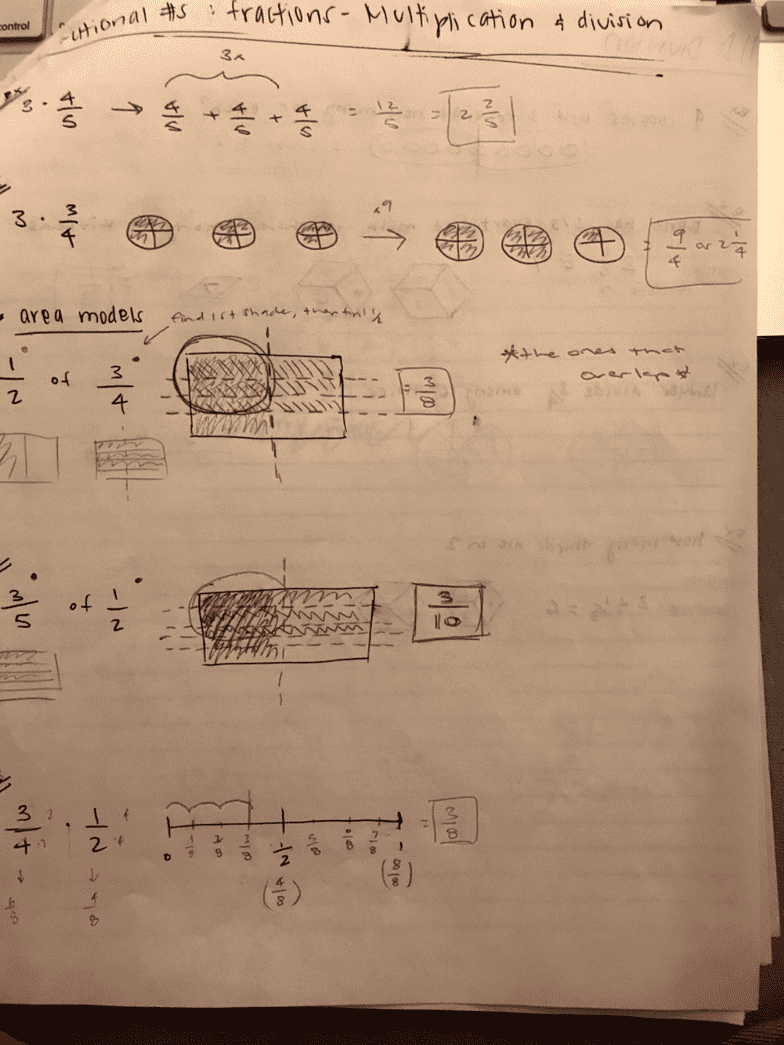 control
ational #s : fractions - Multiplication & division
3x
ex 3 · 4/5 → 4/5 + 4/5 + 4/5 = 12/5 = 2 2/5
3 · 3/4 x9 → = 9/4 or 2 1/4
area models
find 1st shade, then find 1/2
1/2 of 3/4 = 3/8
*the ones that
overlap*
3/5 of 1/2 3/10
3/4 · 1/2 = 3/8
0 1/8 2/8 3/8 1/2 5/8 6/8 7/8 1
(4/8) (8/8)
6/8 4/8